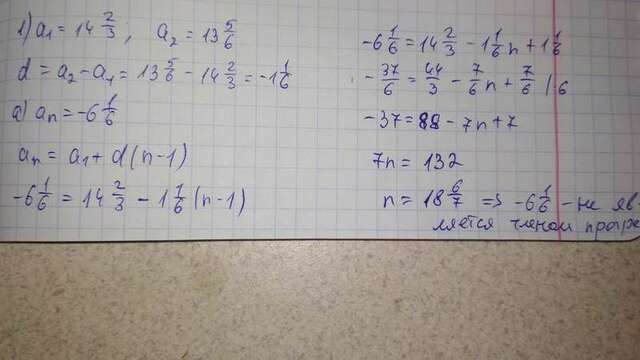 1) a₁ = 14 2/3 ; a₂ = 13 5/6
d = a₂ - a₁ = 13 5/6 - 14 2/3 = -1 1/6
а) aₙ = -6 1/6
aₙ = a₁ + d(n-1)
-6 1/6 = 14 2/3 - 1 1/6 (n-1)
-6 1/6 = 14 2/3 - 1 1/6 n + 1 1/6
- 37/6 = 44/3 - 7/6 n + 7/6 | 6
-37 = 88 - 7n + 7
7n = 132
n = 18 6/7 => -6 1/6 - не яв-
ляется членом прогр